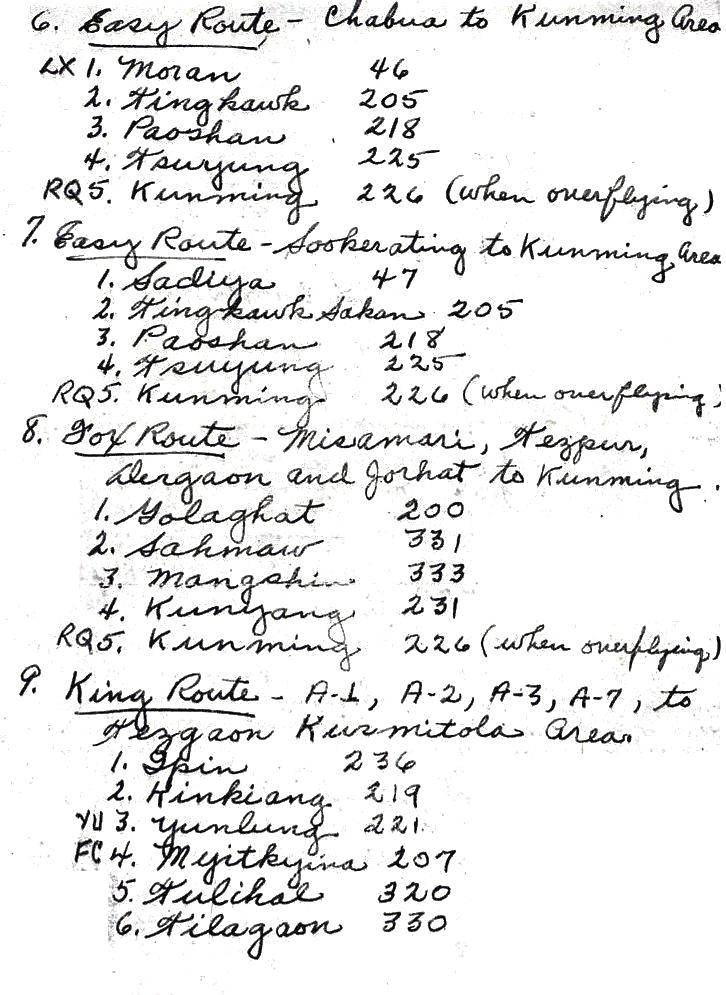 6. Easy Route - Chabua to Kunming Area
LX 1. Moran 46
2. Tingkawk 205
3. Paoshan 218
4. Tsuyung 225
RQ 5. Kunming 226 (when overflying)
7. Easy Route - Sookerating to Kunming Area
1. Sadiya 47
2. Tingkawk Sakan 205
3. Paoshan 218
4. Tsuyung 225
RQ 5. Kunming 226 (when overflying)
8. Fox Route - Misamari, Tezpur,
Dergaon and Jorhat to Kunming.
1. Golaghat 200
2. Sahmaw 331
3. Mangshin 333
4. Kunyang 231
RQ 5. Kunming 226 (when overflying)
9. King Route - A-1, A-2, A-3, A-7, to
Tezgaon Kurmitola Area.
1. Ipin 236
2. Kinkiang 219
YU 3. Yunlung 221
FC 4. Myitkyina 207
5. Tulihal 320
6. Tilagaon 330